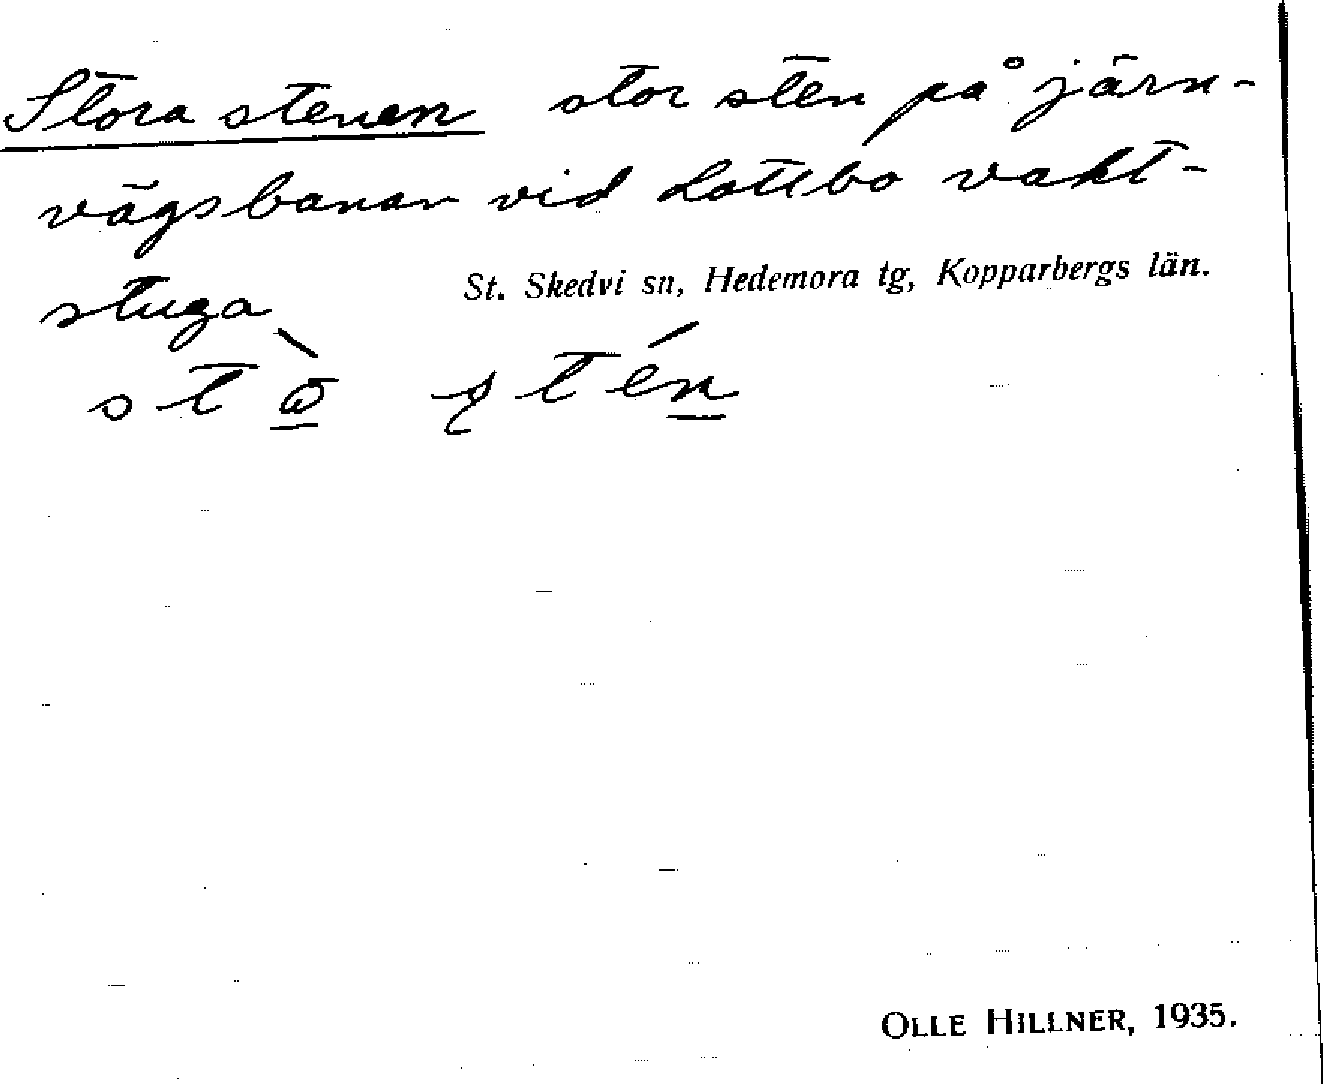 Stora stenen stor sten på järn-
vägsbanan vid Lottbo vakt-
stuga
St. Skedvi sn, Hedemora tg, Kopparbergs län.
OLLE HILLNER, 1935.